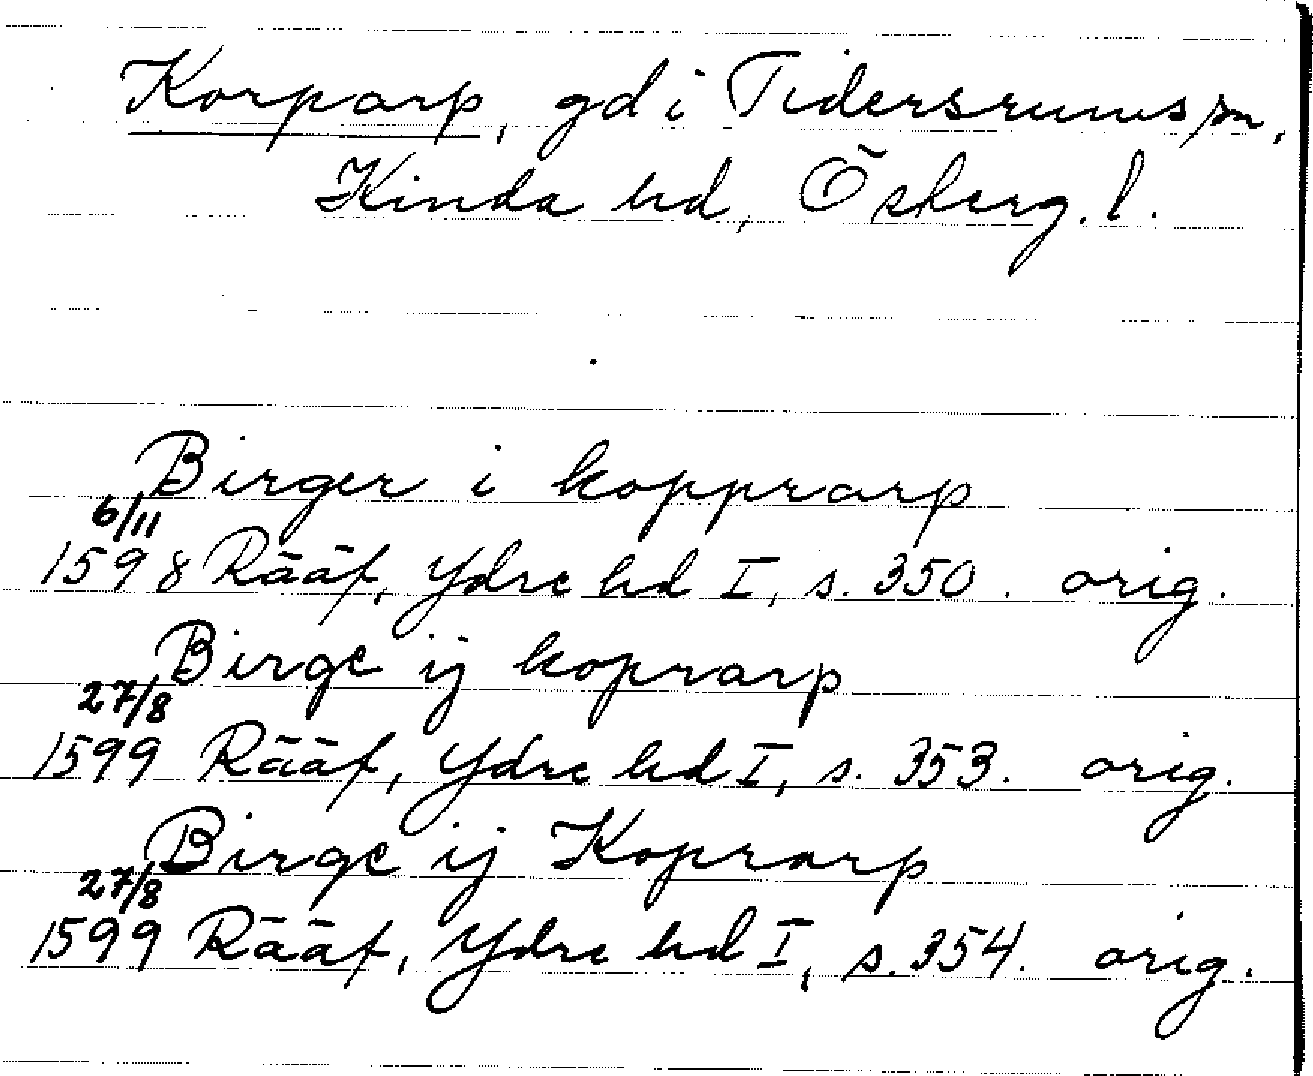 Korparp, gd i Tidersrums sn,
Kinda hd, Österg. l.
Birger i kopprarp
6/11
1598 Rääf, Ydre hd I, s. 350. orig.
Birge ij koprarp
27/8
1599 Rääf, Ydre hd I, s. 353. orig.
Birge ij Koprarp
27/8
1599 Rääf, Ydre hd I, s. 354. orig.